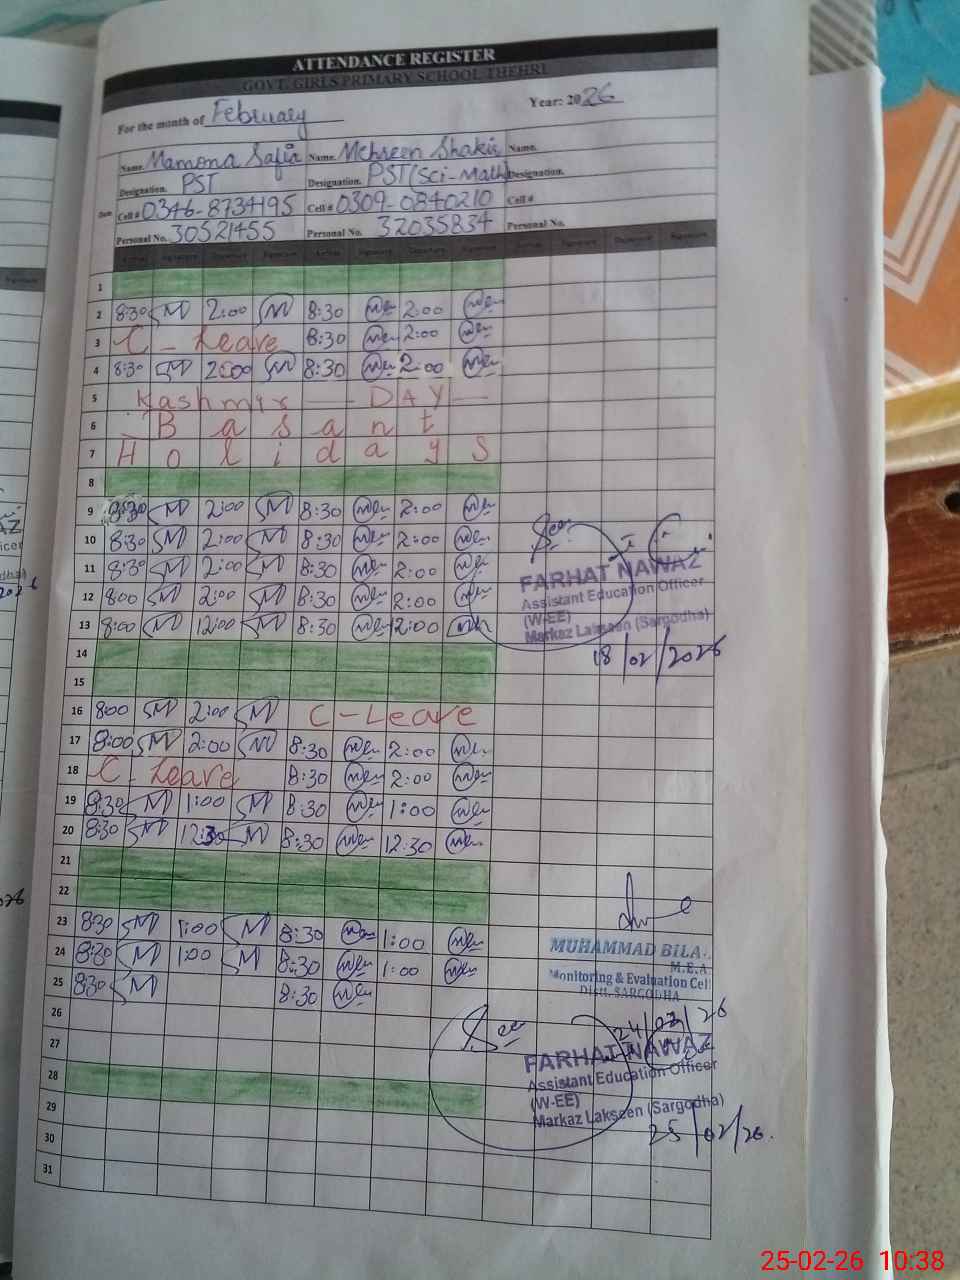 ATTENDANCE REGISTER
GOVT. GIRLS PRIMARY SCHOOL THEHRI
For the month of February Year: 2026
Name. Mamona Safia Name. Mehreen Shakir Name.
Designation. PST Designation. PST(Sci-Math) Designation.
Date Cell # 0346-8734195 Cell # 0309-0840210 Cell #
Personal No. 30521455 Personal No. 32035834 Personal No.
Arrival Signature Departure Signature Arrival Signature Departure Signature Arrival Signature Departure Signature
1
2 8:30 M 2:00 M 8:30 2:00
3 C - Leave 8:30 2:00
4 8:30 M 2:00 M 8:30 2:00
5 Kashmir — DAY —
6 Basant
7 Holidays
8
9 8:30 M 2:00 M 8:30 2:00
10 8:30 M 2:00 M 8:30 2:00
11 8:30 M 2:00 M 8:30 2:00
12 800 M 2:00 M 8:30 2:00
13 8:00 M 12:00 M 8:30 12:00
14
15
16 800 M 2:00 M C-Leave
17 8:00 M 2:00 M 8:30 2:00
18 C - Leave 8:30 2:00
19 8:30 M 1:00 M 8:30 1:00
20 8:30 M 12:30 M 8:30 12:30
21
22
23 8:30 M 1:00 M 8:30 1:00
24 8:30 M 1:00 M 8:30 1:00
25 8:30 M 8:30
26
27
28
29
30
31
See
FARHAT NAWAZ
Assistant Education Officer
(W-EE)
Markaz Lakseen (Sargodha)
18/02/2026
MUHAMMAD BILA
M.E.A
Monitoring & Evaluation Cell
Distt. SARGODHA
24/02/26
See
FARHAT NAWAZ
Assistant Education Officer
(W-EE)
Markaz Lakseen (Sargodha)
25/02/26.
25-02-26 10:38